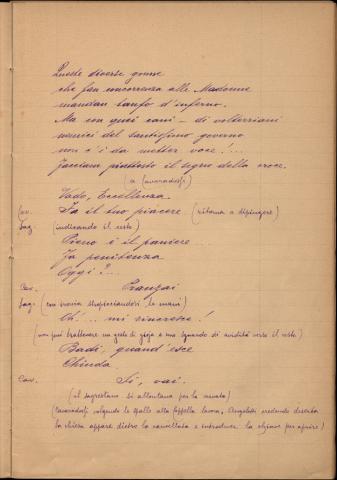 Queste diverse gonne
che fan concorrenza alle Madonne
mandan tanfo d'inferno.
Ma con quei cani - di volterriani
nemici del santissimo governo
non c'è da metter voce!...
Facciam piuttosto il segno della croce.
(a Cavaradossi)
Vado, Eccellenza.
Cav. Fa il tuo piacere (ritorna a dipingere)
Sag. (indicando il cesto)
Pieno è il paniere...
Fa penitenza
Oggi?...
Cav. Pranzai
Sag. (con traccia stropicciandosi le mani)
Oh!... mi rincresce!
(non può trattenere un gesto di gioja e uno sguardo di avidità verso il cesto)
Badi, quand'esce
Chiuda.
Cav. Sì, vai.
(il sagrestano si allontana per la navata)
(Cavaradossi volgendo le spalle alla Cappella lavora; Angelotti credendo deserta
la chiesa appare dietro la cancellata e introduce la chiave per aprire)